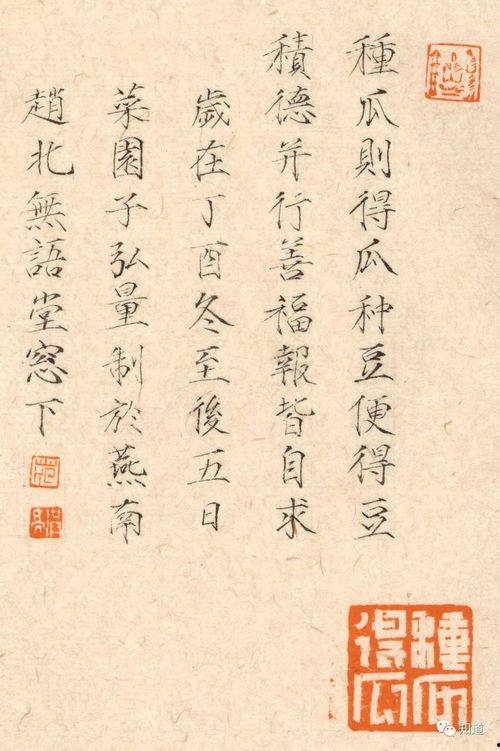 種瓜則得瓜种豆便得豆
積德并行善福報皆自求
歲在丁酉冬至後五日
菜園子弘量制於燕南
趙北無語堂窓下
種瓜得瓜
知道